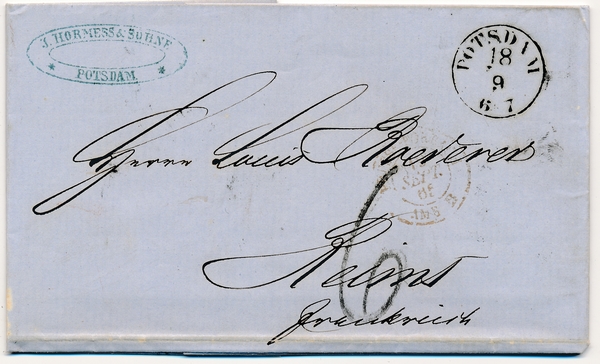 J. HORMESS & SOHNE
* POTSDAM. *
POTSDAM
18
9
6 7
Herrn Louis Roederer
SEPT.
Reims
6
Frankreich